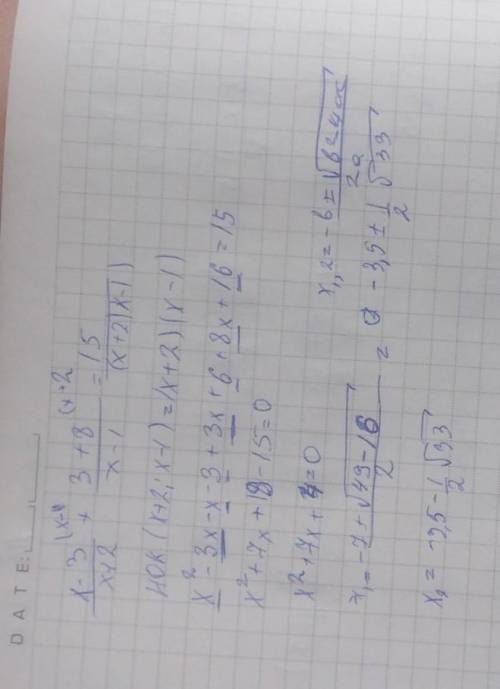 DATE:
x-3 (x-1 / x+2 + 3+8 (x+2 / x-1 = 15 / (x+2)(x-1)
НОК (x+2; x-1) = (x+2)(x-1)
x² - 3x - x - 3 + 3x + 6 + 8x + 16 = 15
x² + 7x + 19 - 15 = 0
x² + 7x + 4 = 0
x₁,₂ = -b ± √b²-4ac / 2a
x₁ = -7 + √49-16 / 2 = -3,5 ± 1/2 √33
x₂ = -3,5 - 1/2 √33